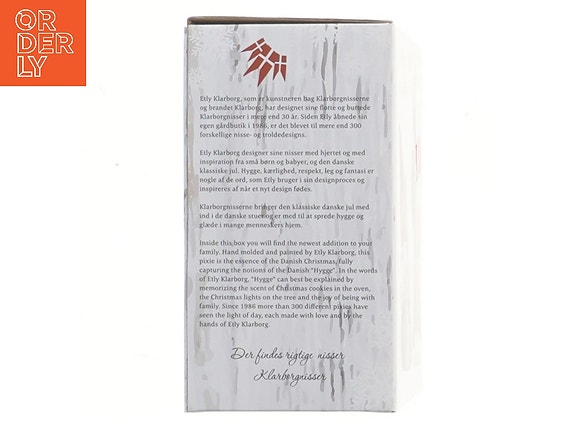 OR
DER
LY
Etly Klarborg, som er kunstneren bag Klarborgnisserne
og brandet Klarborg, har designet sine flotte og buttede
Klarborgnisser i mere end 30 år. Siden Etly åbnede sin
egen gårdbutik i 1986, er det blevet til mere end 300
forskellige nisse- og troldedesigns.
Etly Klarborg designer sine nisser med hjertet og med
inspiration fra små børn og babyer, og den danske
klassiske jul. Hygge, kærlighed, respekt, leg og fantasi er
nogle af de ord, som Etly bruger i sin designproces og
inspireres af når et nyt design fødes.
Klarborgnisserne bringer den klassiske danske jul med
ind i de danske stuer og er med til at sprede hygge og
glæde i mange menneskers hjem.
Inside this box you will find the newest addition to your
family. Hand molded and painted by Etly Klarborg, this
pixie is the essence of the Danish Christmas, fully
capturing the notions of the Danish "Hygge". In the words
of Etly Klarborg, "Hygge" can best be explained by
memorizing the scent of Christmas cookies in the oven,
the Christmas lights on the tree and the joy of being with
family. Since 1986 more than 300 different pixies have
seen the light of day, each made with love and by the
hands of Etly Klarborg.
Der findes rigtige nisser
Klarborgnisser